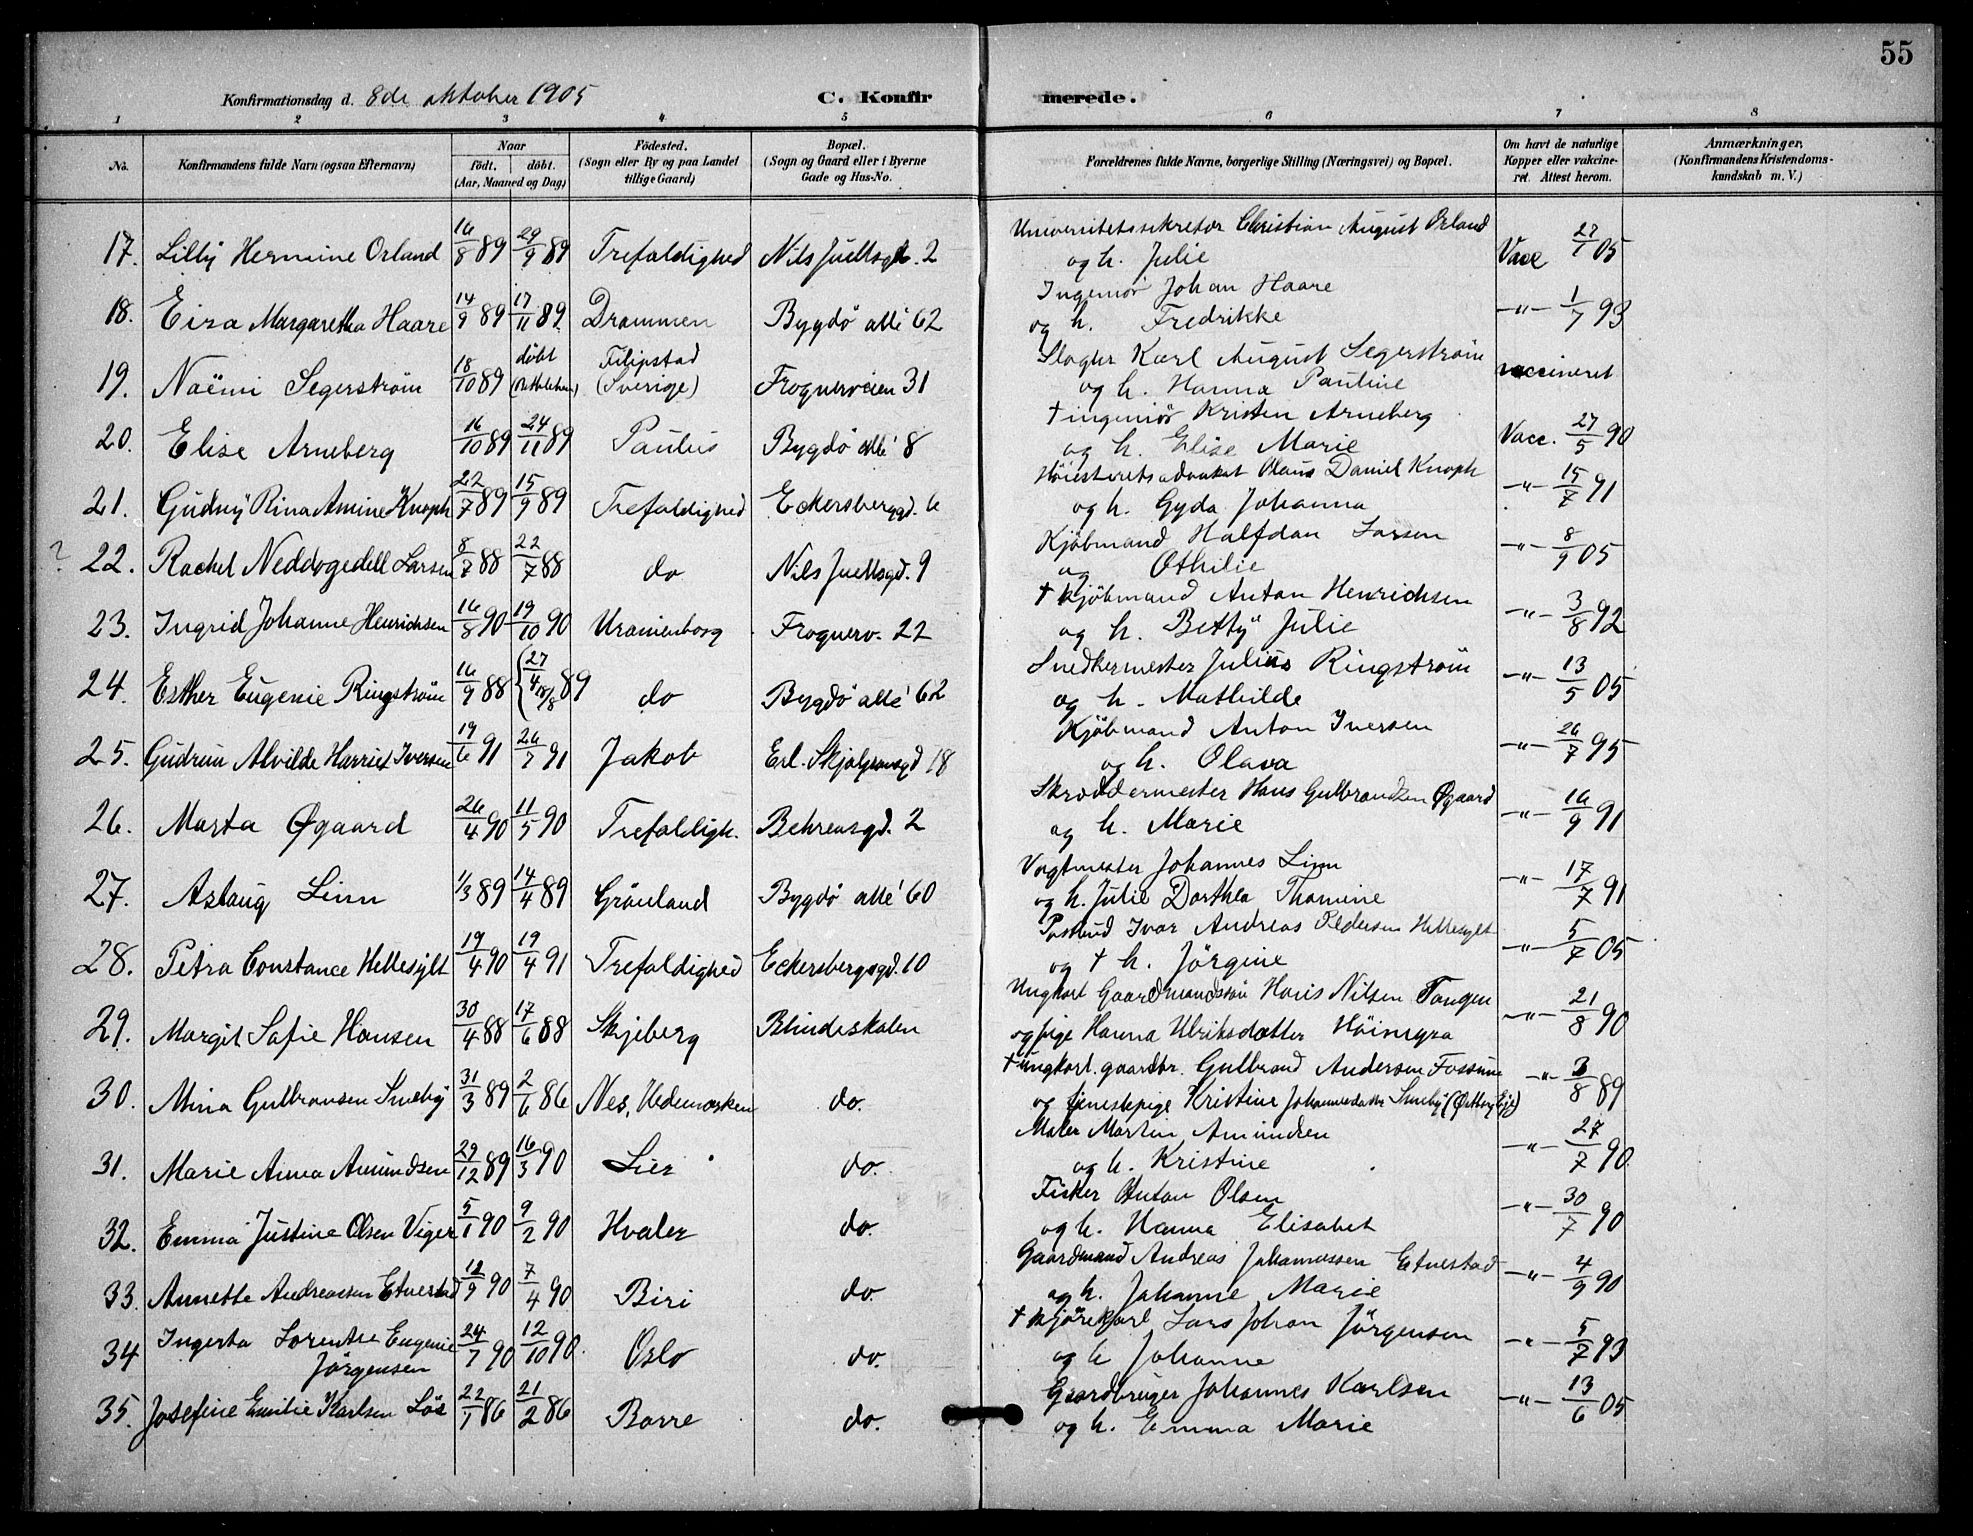 55
Konfirmationsdag d. 8de oktober 1905 C. Konfirmerede.
1 2 3 4 5 6 7 8
No. Konfirmandens fulde Navn (ogsaa Efternavn) Naar födt. döbt. (Aar, Maaned og Dag) Födested. (Sogn eller By og paa Landet tillige Gaard) Bopæl. (Sogn og Gaard eller i Byerne Gade og Hus-No. Forældrenes fulde Navne, borgerlige Stilling (Næringsvei) og Bopæl. Om havt de naturlige Kopper eller vakcineret. Attest herom. Anmærkninger, (Konfirmandens Kristendomskundskab m. V.)
17. Lilly Hermine Orland 16/8 89 29/9 89 Trefoldighed Nils Juelsgd. 2 Universitetssekretær Christian August Orland
og h. Julie Vacc 27/1 05
18. Eisa Margaretha Haare 14/9 89 17/11 89. Drammen Bygdö allé 62 Ingeniör Johan Haare
og h. Fredrikke -"- 1/7 93
19. Noëmi Segerström 18/10 89 döbt (Bethlehem) Filipstad (Sverige) Frognerveien 31 Slagter Karl August Segerström
og h. Hanna Pauline vaccineret
20. Elise Arneberg 16/10 89 24/11 89 Paulus Bygdö allé 8 † ingeniör Kristen Arneberg
og h. Elise Marie Vacc. 27/5 90
21. Gudny Rina Amine Knoph 22/7 89 15/9 89 Trefoldighed Eckersberggd. 6 Höiesteretsadvokat Olaus Daniel Knoph
og h. Gyda Johanna -"- 15/7 91
? 22. Rachel Neddogedell Larsen 8/7 88 22/7 88 do Nils Juelsgd. 9 Kjöbmand Halfdan Larsen
og Othilie -"- 8/9 05
23. Ingrid Johanne Henrichsen 16/8 90 19/10 90 Uranienborg Frognerv. 22 † kjöbmand Anton Henrichsen
og h. Betty Julie -"- 3/8 92
24. Esther Eugenie Ringström 16/9 88 { 27/4 18/8 89 do Bygdö allé 62 Snedkermester Julius Ringström
og h. Mathilde -"- 13/5 05
25. Gudrun Alvilde Harriet Iversen 19/6 91 26/7 91 Jakob Erl. Skjalgsonsgd 18 Kjöbmand Anton Iversen
og h. Olava -"- 26/7 95
26. Marta Øgaard 26/4 90 11/5 90 Trefoldigh. Behrensgd. 2 Skræddermester Hans Gulbrandsen Øgaard
og h. Marie -"- 16/9 91
27. Aslaug Linn 1/3 89 14/4 89 Grönland Bygdö allé 60 Vagtmester Johannes Linn
og h. Julie Dorthea Thomine -"- 17/7 91
28. Petra Constance Hellesylt 19/4 90 19/4 91 Trefoldighed Eckersbergsgd. 10 Postbud Ivar Andreas Pedersen Hellesylt
og † h. Jörgine -"- 5/7 05
29. Margit Sofie Hansen 30/4 88 17/6 88 Skjeberg Blindeskolen Ungkarl Gaardmandssön Hans Nilsen Tangen
og pige Hanna Ulriksdatter Höimyra -"- 21/8 90
30. Mina Gulbransen Smeby 31/3 89 2/6 86 Nes, Hedemarken do. † ungkarl. gaardbr. Gulbrand Andersen Fossum
og tjenestepige Kristine Johannesdatter Smeby -"- 3/8 89
31. Marie Anna Amundsen 29/12 89 16/3 90 Lier do. Maler Martin Amundsen
og h. Kristine -"- 27/7 90
32. Emma Justine Olsen Viger 5/1 90 9/2 90 Hvaler do. Fisker Anton Olsen
og h. Hanna Elisabet -"- 30/7 90
33. Annette Andreassen Etnestad 12/9 90 7/4 90 Biri do. Gaardmand Andreas Johannessen Etnestad
og h. Johanne Marie -"- 4/9 90
34 Ingerta Lorentse Eugenie
Jörgensen 24/7 90 12/10 90. Oslo do. † kjörekarl Lars Johan Jörgensen
og h Johanne -"- 5/7 93
35. Josefine Emilie Karlsen Lös 22/1 86 21/2 86 Borre do. Gaardbruger Johannes Karlsen
og h. Emma Marie -"- 13/6 05